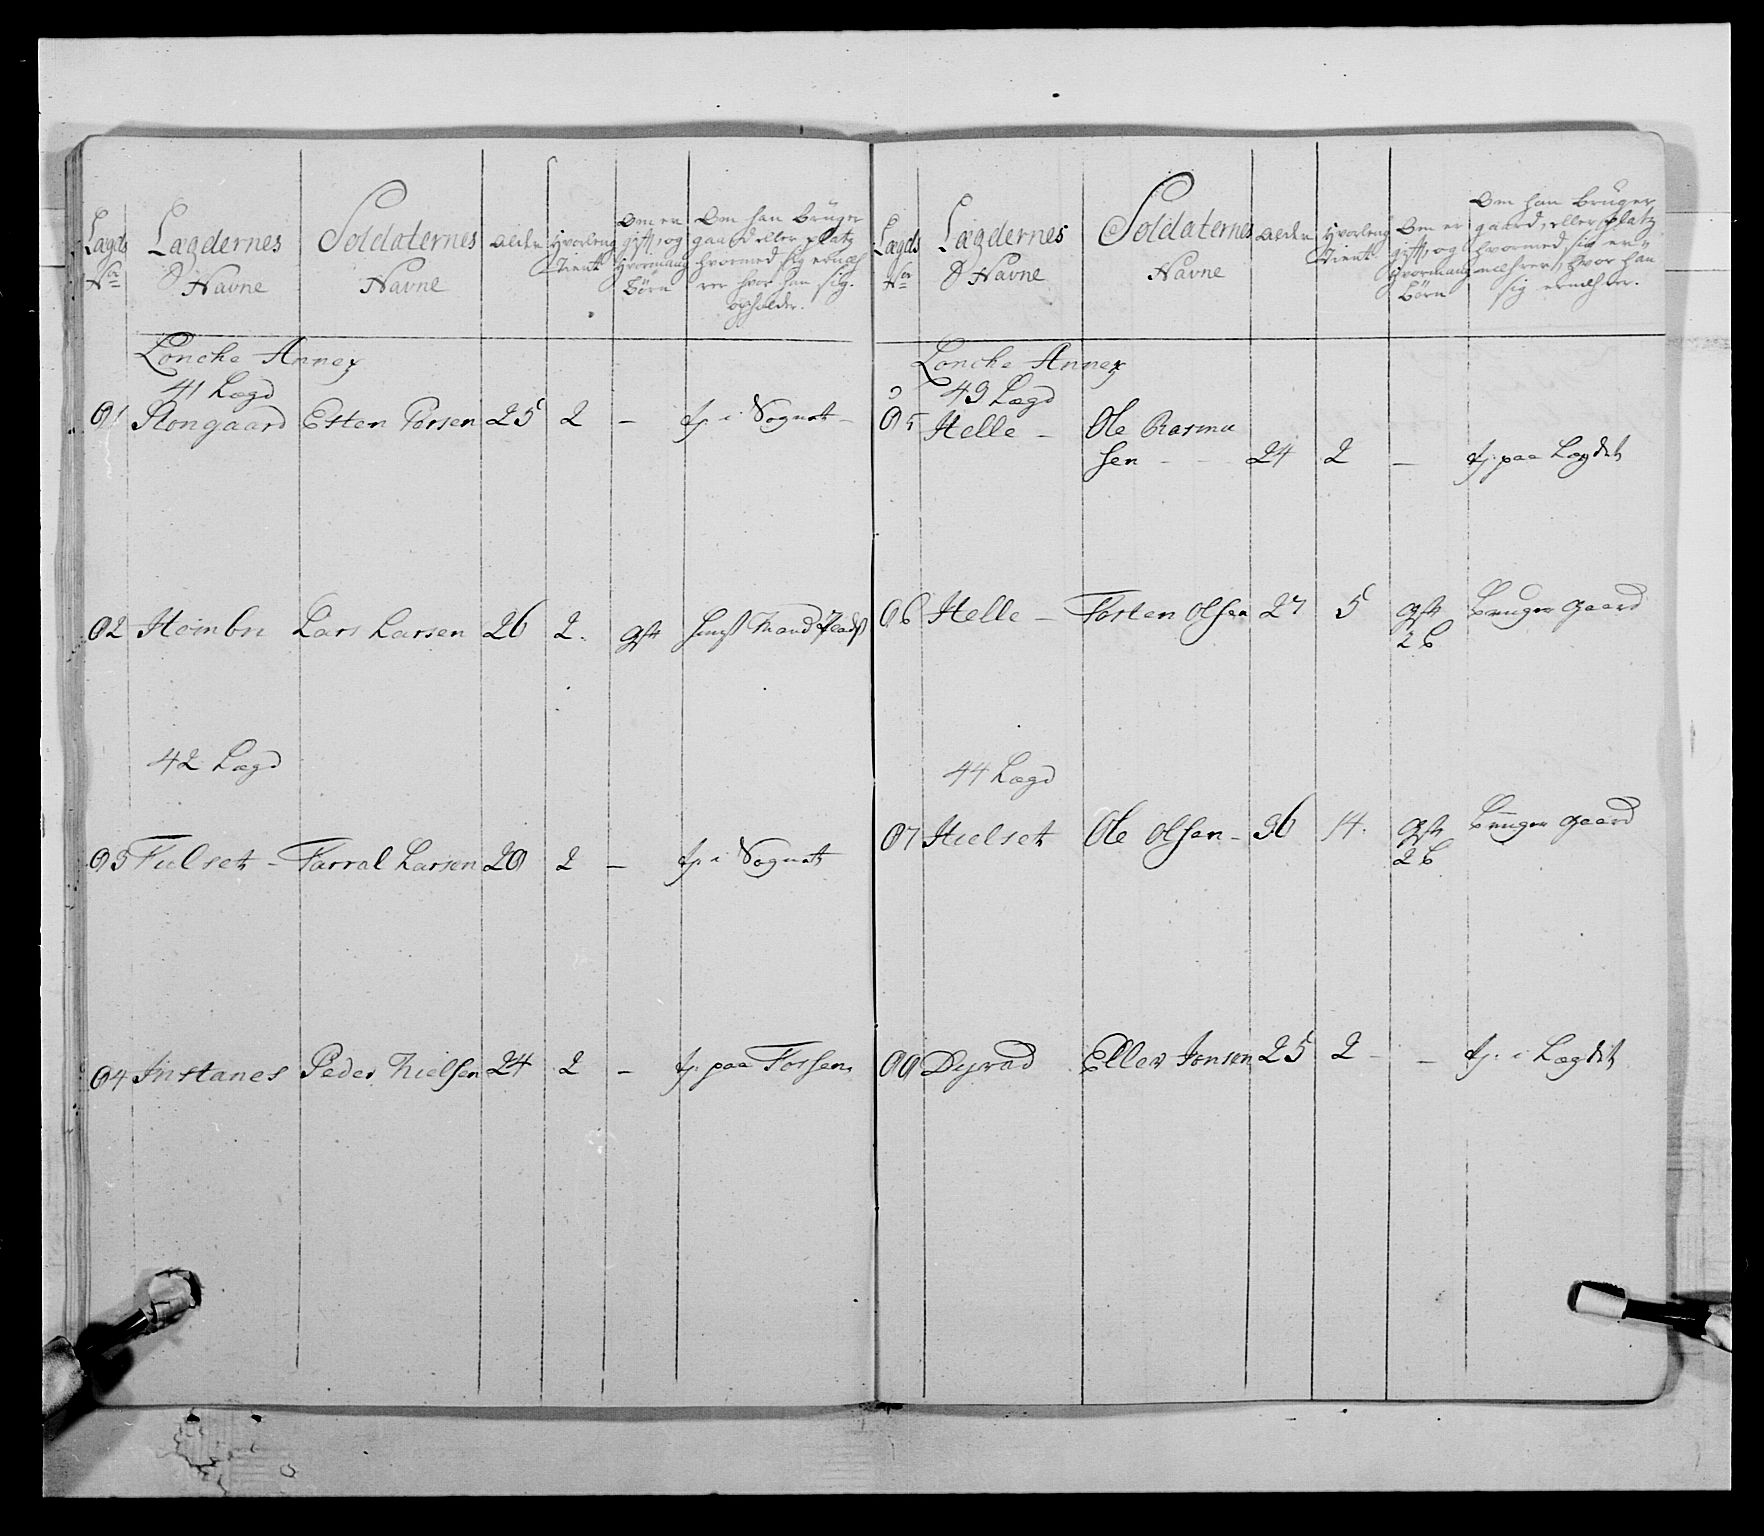 Lægds No
Lægdernes Navne
Soldaternes Navne
alder
Hvorleng Tient
Om er gift, og Hvormang börn
Om han bruger gaard eller platz hvormed sig ernæh rer hvor han sig opholder.
Loncke Annex
41 Lægd
81 Stongaard Esten Torsen 25 2 – tj. i Sognet –
82 Heimbre Lars Larsen 26 2. gft
42 Lægd
83 Fielset – Tarral Larsen 20 2 – tj. i Sognet
84 Instanes Peder Nielsen 24 2 – tj. paa Fossen
Lægds No
Lægdernes Navne
Soldaternes Navne
alder
Hvorleng Tient
Om er gift, og Hvormang börn
Om han bruger gaard, eller platz hvormed sig er næhrer, hvor han sig
Loncke Annex
43 Lægd
85 Helle – Ole Rasmu
sen – 24 2 – tj. paa Lægdet
86 Helle – Torsten Olsen 27 5 gft Bruger gaard
2 b
44 Lægd
87 Hielset Ole Olsen – 36 14. gft Bruger gaard
2 b
88 Dyrad Ellev Jonsen 25 2 – – tj. i Lægdet